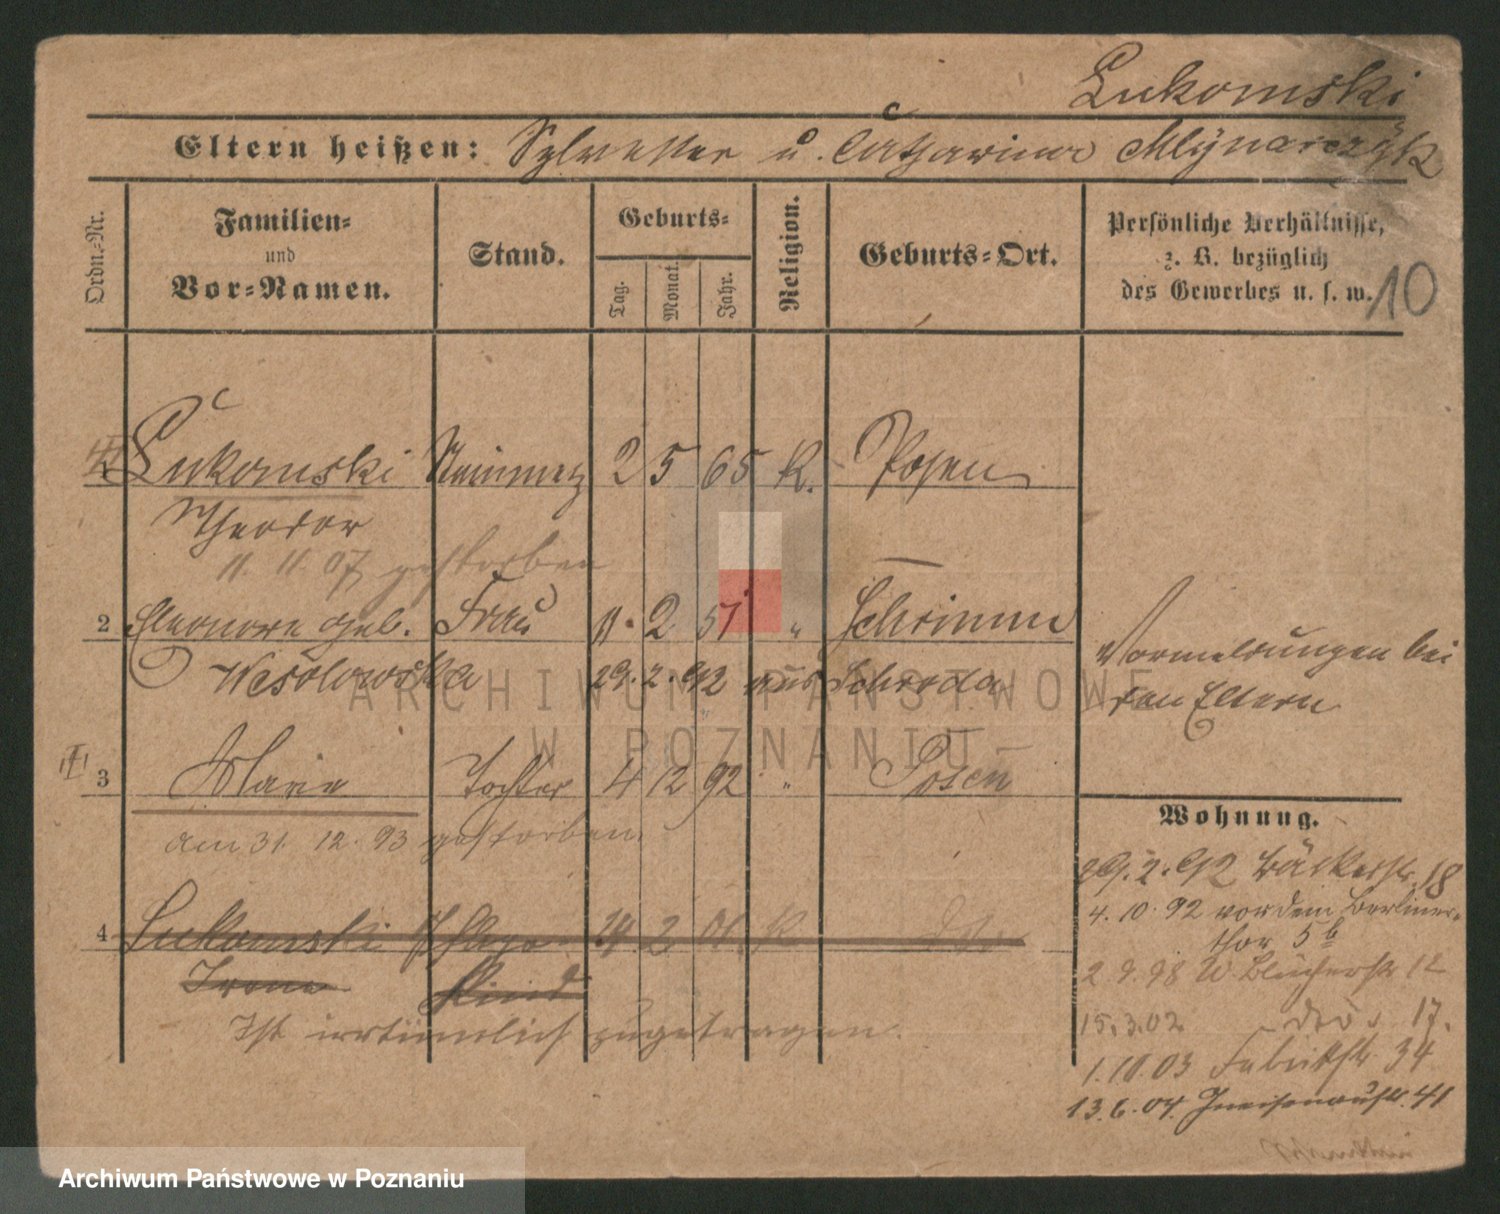 Lukomski
Eltern heißen: Sylvester u. Catharina Mlynarczyk
Ordn.-Nr.
Familien-
und
Vor-Namen.
Stand.
Geburts-
Tag.
Monat.
Jahr.
Religion.
Geburts-Ort.
Persönliche Verhältnisse,
z. B. bezüglich
des Gewerbes u. s. w.
10
Lukomski Steinmetz 2 5 65 K. Posen
Theodor
11. 11. 07 gestorben
2 Eleonore geb. Frau 11. 2 51 " Schrimm
Wesolowska 29. 2. 92 aus Schroda
Vormeldungen bei
den Eltern
3 Marie Tochter 4 12 92 " Posen
am 31. 12. 93 gestorben.
4 Lukomski 14 2 01. K
Irene Kind
Ist irrtümlich zugetragen.
Wohnung.
29. 2. 92 Bäckerstr. 18
4. 10. 92 vor dem Berliner-
thor 5b
2. 9. 98 W. Blücherstr 12
15. 3. 02 17.
1. 10. 03 Fabrikstr. 34
13. 6. 04. Gneisenaustr. 41
ARCHIWUM PAŃSTWOWE
W POZNANIU
Archiwum Państwowe w Poznaniu